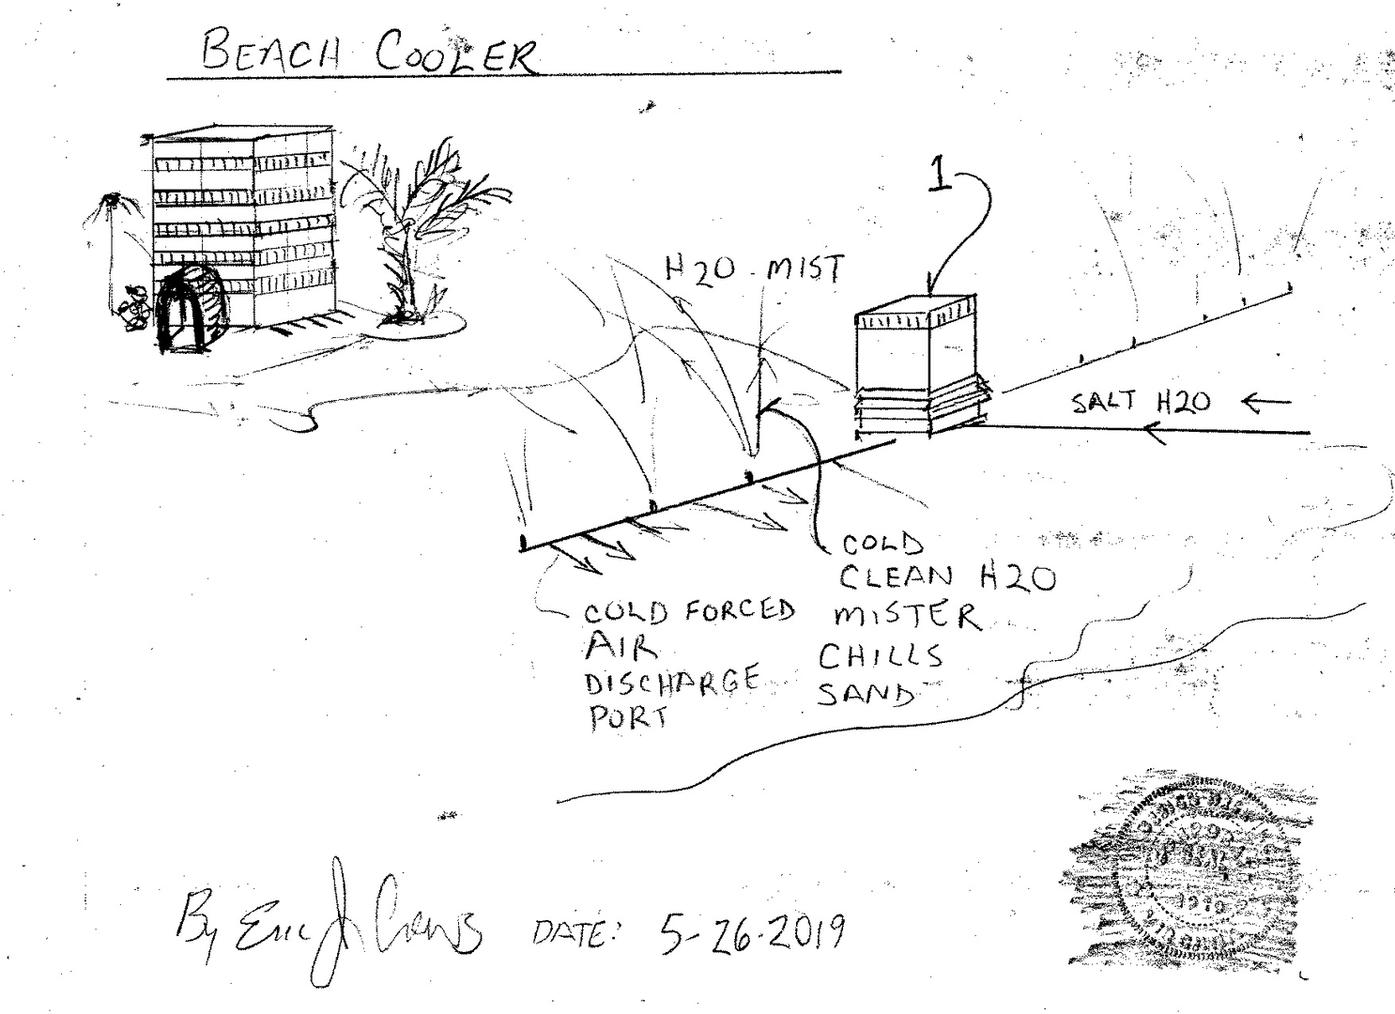 BEACH COOLER
1
H2O MIST
SALT H2O
COLD
CLEAN H2O
MISTER
CHILLS
SAND
COLD FORCED
AIR
DISCHARGE
PORT
By Eric J Crews DATE: 5-26-2019